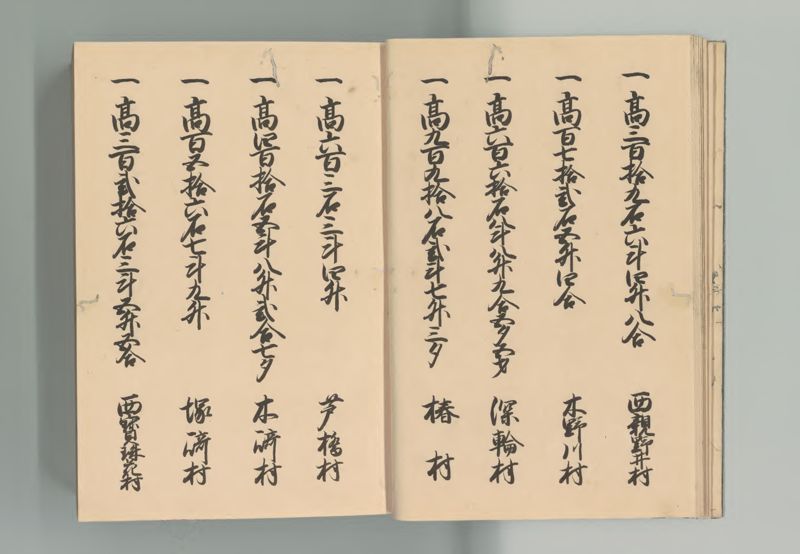 一高三百拾九石六斗四升八合 西親野井村
一高百七拾弐石五升四合 木野川村
一高六百六拾石八斗八升九合五夕五才 深輪村
一高九百九拾八石弐斗七升三夕 椿村
一高六百三石三斗四升 芦橋村
一高四百拾石五斗八升弐合七夕 木崎村
一高百五拾六石七斗九升 塚崎村
一高三百弐拾六石三斗五升五合 西宝珠花村